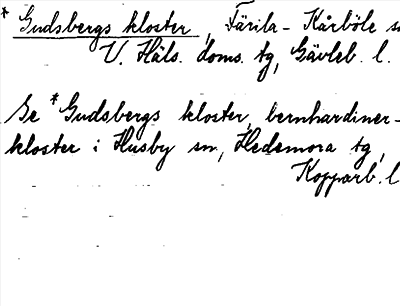 * Gudsbergs kloster, Färila-Kårböle s
V. Häls. doms. tg, Gävleb. l.
Se *Gudsbergs kloster, bernhardiner-
kloster i Husby sn, Hedemora tg,
Kopparb. l